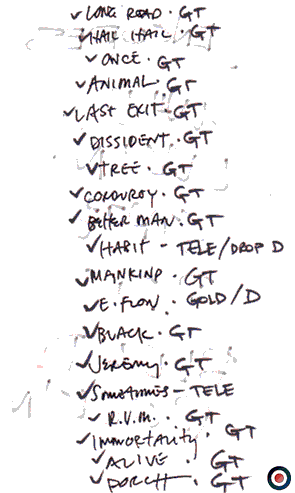 ✓ LONG ROAD · GT
✓ HAIL HAIL · GT
✓ ONCE · GT
✓ ANIMAL · GT
✓ LAST EXIT · GT
✓ DISSIDENT · GT
✓ TREE · GT
✓ CORDUROY · GT
✓ BETTER MAN · GT
✓ HABIT - TELE/DROP D
✓ MANKIND · GT
✓ E. FLOW · GOLD/D
✓ BLACK · GT
✓ JEREMY · GT
✓ SOMETIMES - TELE
✓ R.V.M. · GT
✓ IMMORTALITY · GT
✓ ALIVE · GT
✓ PORCH · GT